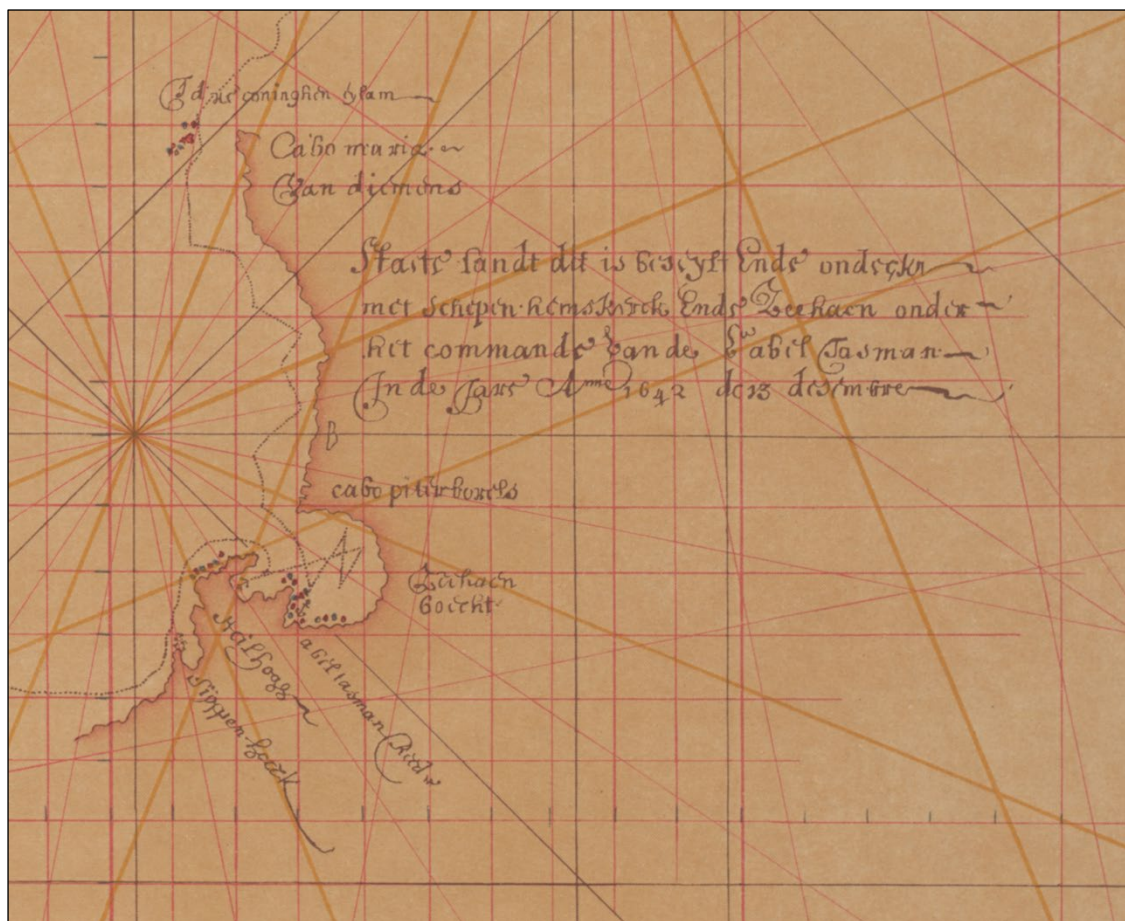 Cabo maria
Van diemens
Staete Landt dit is beseylt Ende ondeckt
met Schepen hemskerck Ende Zeehaen onder
het commande van de E abel Tasman
In de Jare Anno 1642 de 13 desembre
cabo pieter borels
Zeehaen
bocht
abel tasman Reede
hoeck